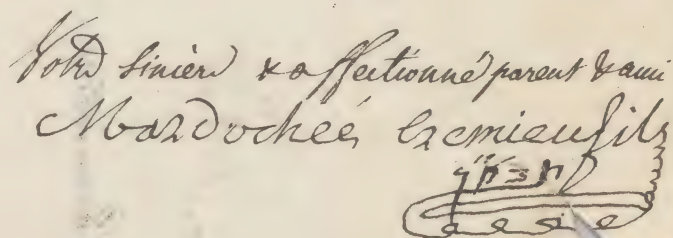 Votre sinière & affectionné parent & ami
Mardochée Crémieu fils